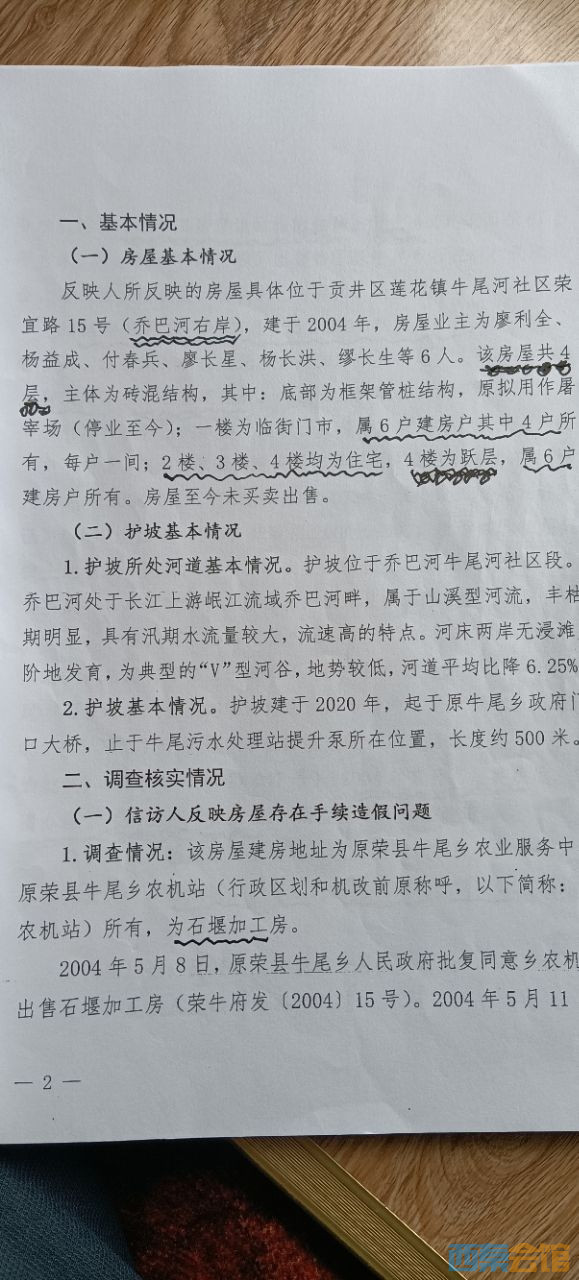 一、基本情况
（一）房屋基本情况
反映人所反映的房屋具体位于贡井区莲花镇牛尾河社区荣
宜路15号（乔巴河右岸），建于2004年，房屋业主为廖利全、
杨益成、付春兵、廖长星、杨长洪、缪长生等6人。该房屋共4
层，主体为砖混结构，其中：底部为框架管桩结构，原拟用作屠
宰场（停业至今）；一楼为临街门市，属6户建房户其中4户所
有，每户一间；2楼、3楼、4楼均为住宅，4楼为跃层，属6户
建房户所有。房屋至今未买卖出售。
（二）护坡基本情况
1.护坡所处河道基本情况。护坡位于乔巴河牛尾河社区段。
乔巴河处于长江上游岷江流域乔巴河畔，属于山溪型河流，丰枯
期明显，具有汛期水流量较大，流速高的特点。河床两岸无浸滩
阶地发育，为典型的“V”型河谷，地势较低，河道平均比降6.25%
2.护坡基本情况。护坡建于2020年，起于原牛尾乡政府门
口大桥，止于牛尾污水处理站提升泵所在位置，长度约500米。
二、调查核实情况
（一）信访人反映房屋存在手续造假问题
1.调查情况：该房屋建房地址为原荣县牛尾乡农业服务中
原荣县牛尾乡农机站（行政区划和机改前原称呼，以下简称：
农机站）所有，为石堰加工房。
2004年5月8日，原荣县牛尾乡人民政府批复同意乡农机
出售石堰加工房（荣牛府发〔2004〕15号）。2004年5月11
— 2 —
西荣会馆